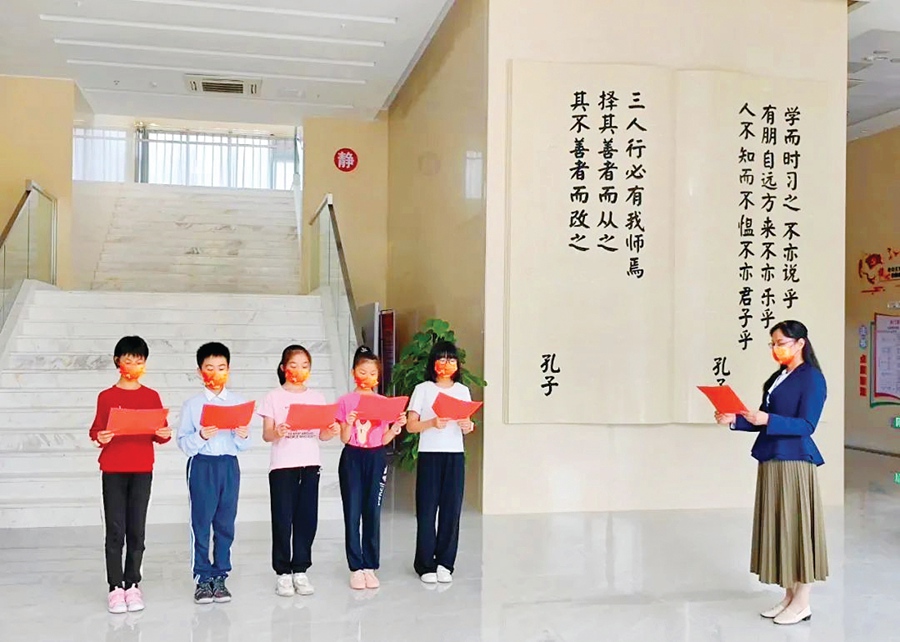 静
学而时习之 不亦说乎
有朋自远方来不亦乐乎
人不知而不愠不亦君子乎
孔子
三人行必有我师焉
择其善者而从之
其不善者而改之
孔子